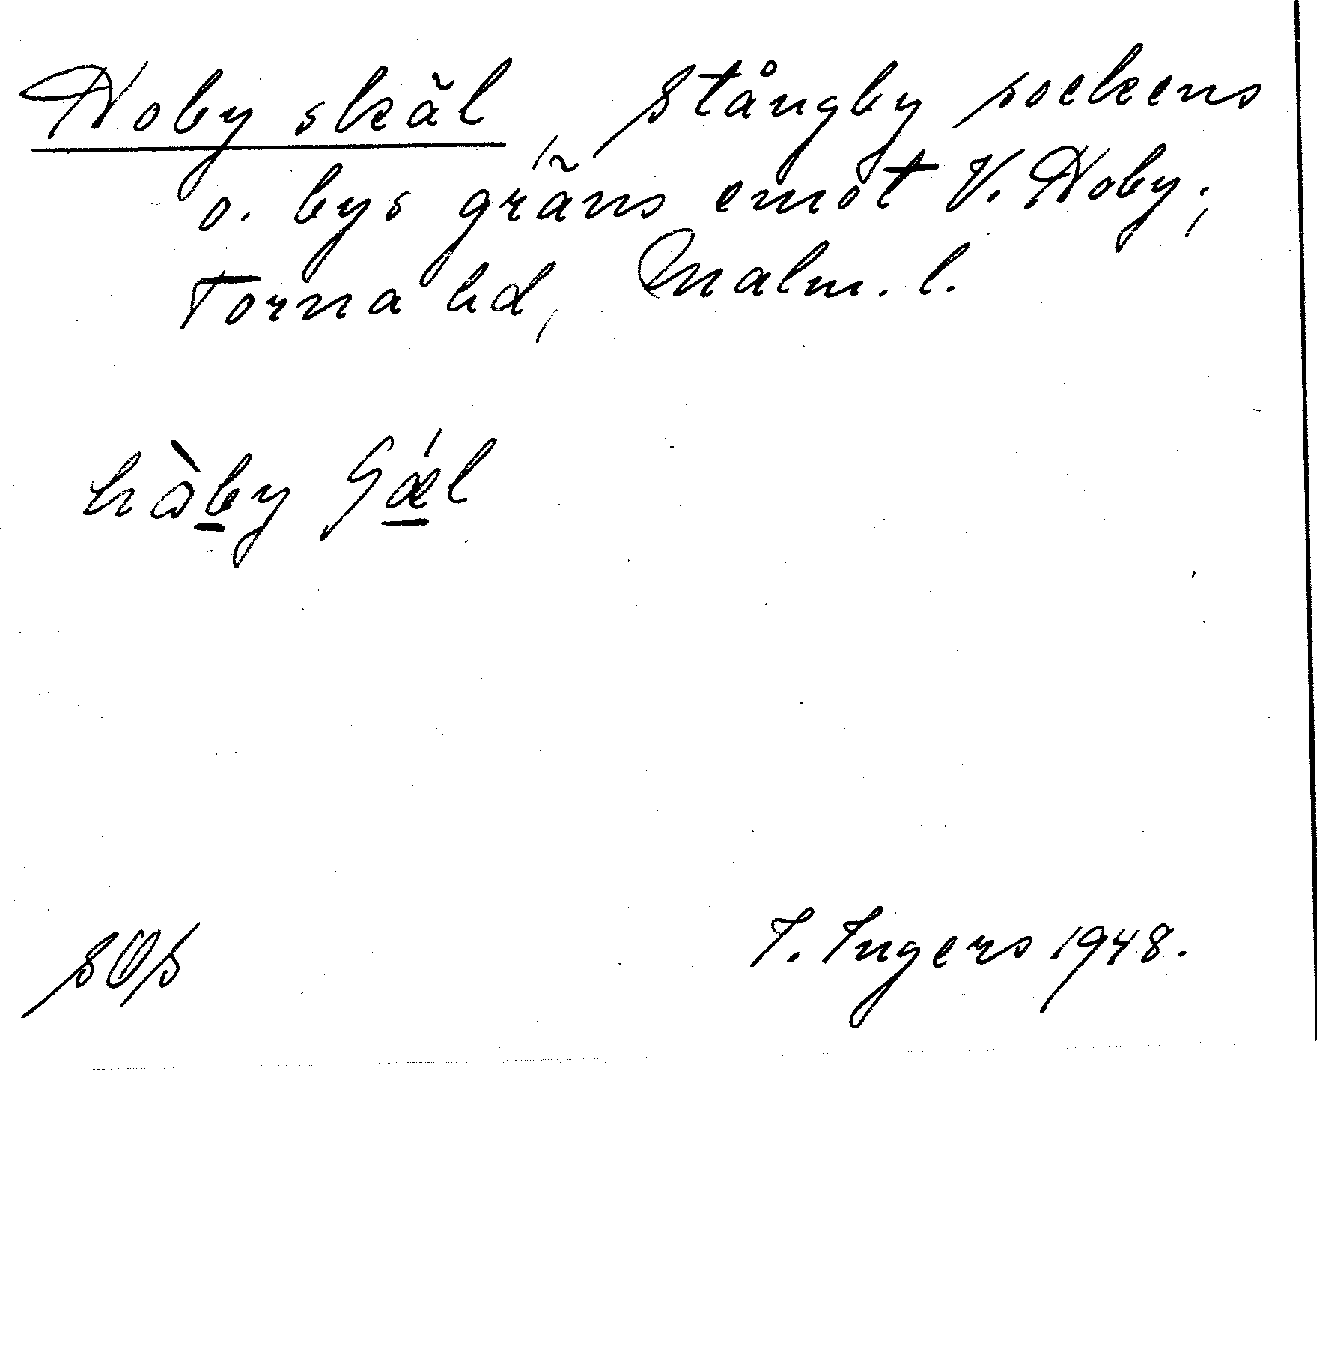 Hoby skäl, Stångby sockens
o. bys gräns emot V. Hoby;
Torna hd, Malm. l.
SOS I. Ingers 1948.